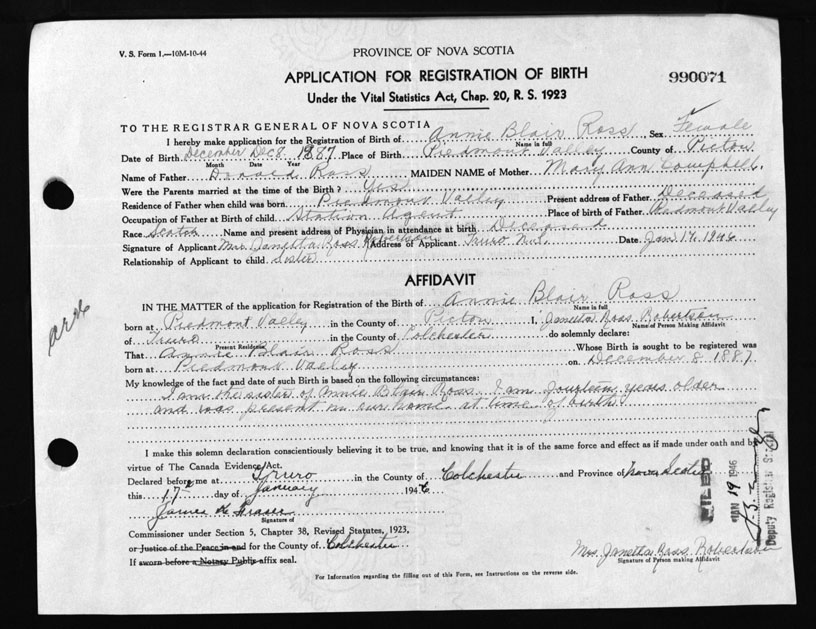 V. S. Form 1.—10M-10-44
PROVINCE OF NOVA SCOTIA
APPLICATION FOR REGISTRATION OF BIRTH
990071
Under the Vital Statistics Act, Chap. 20, R. S. 1923
TO THE REGISTRAR GENERAL OF NOVA SCOTIA
I hereby make application for the Registration of Birth of Annie Blair Ross Sex Female
Name in full
Date of Birth December Dec 8 1887 Place of Birth Piedmont Valley County of Picton
Month Date Year
Name of Father Donald Ross MAIDEN NAME of Mother Mary Ann Campbell.
Were the Parents married at the time of Birth? Yes
Residence of Father when child was born Piedmont Valley Present address of Father Deceased
Occupation of Father at Birth of child Station Agent Place of birth of Father Piedmont Valley
Race Scotch Name and present address of Physician in attendance at birth Deceased
Signature of Applicant Mrs. Janetta Ross Robertson Address of Applicant Truro N.S. Date Jan 17, 1946
Relationship of Applicant to child Sister
AFFIDAVIT
IN THE MATTER of the application for Registration of the Birth of Annie Blair Ross
Name in full
born at Piedmont Valley in the County of Picton I, Janetta Ross Robertson
Name of Person Making Affidavit
of Truro in the County of Colchester do solemnly declare:
Present Residence
That Annie Blair Ross Whose Birth is sought to be registered was
born at Piedmont Valley on December 8 1887
My knowledge of the fact and date of such Birth is based on the following circumstances:
I am the sister of Annie Blair Ross. I am fourteen years older
and was present in our home at time of birth.
I make this solemn declaration conscientiously believing it to be true, and knowing that it is of the same force and effect as if made under oath and by
virtue of The Canada Evidence Act.
Declared before me at Truro in the County of Colchester and Province of Nova Scotia
this 17 day of January 1946
James
Signature of
Commissioner under Section 5, Chapter 38, Revised Statutes, 1923,
or Justice of the Peace in and for the County of Colchester
If sworn before a Notary Public affix seal.
Mrs. Janetta Ross Robertson
Signature of Person making Affidavit
For Information regarding the filling out of this Form, see Instructions on the reverse side.
FILED
JAN 19 1946
Deputy Registrar